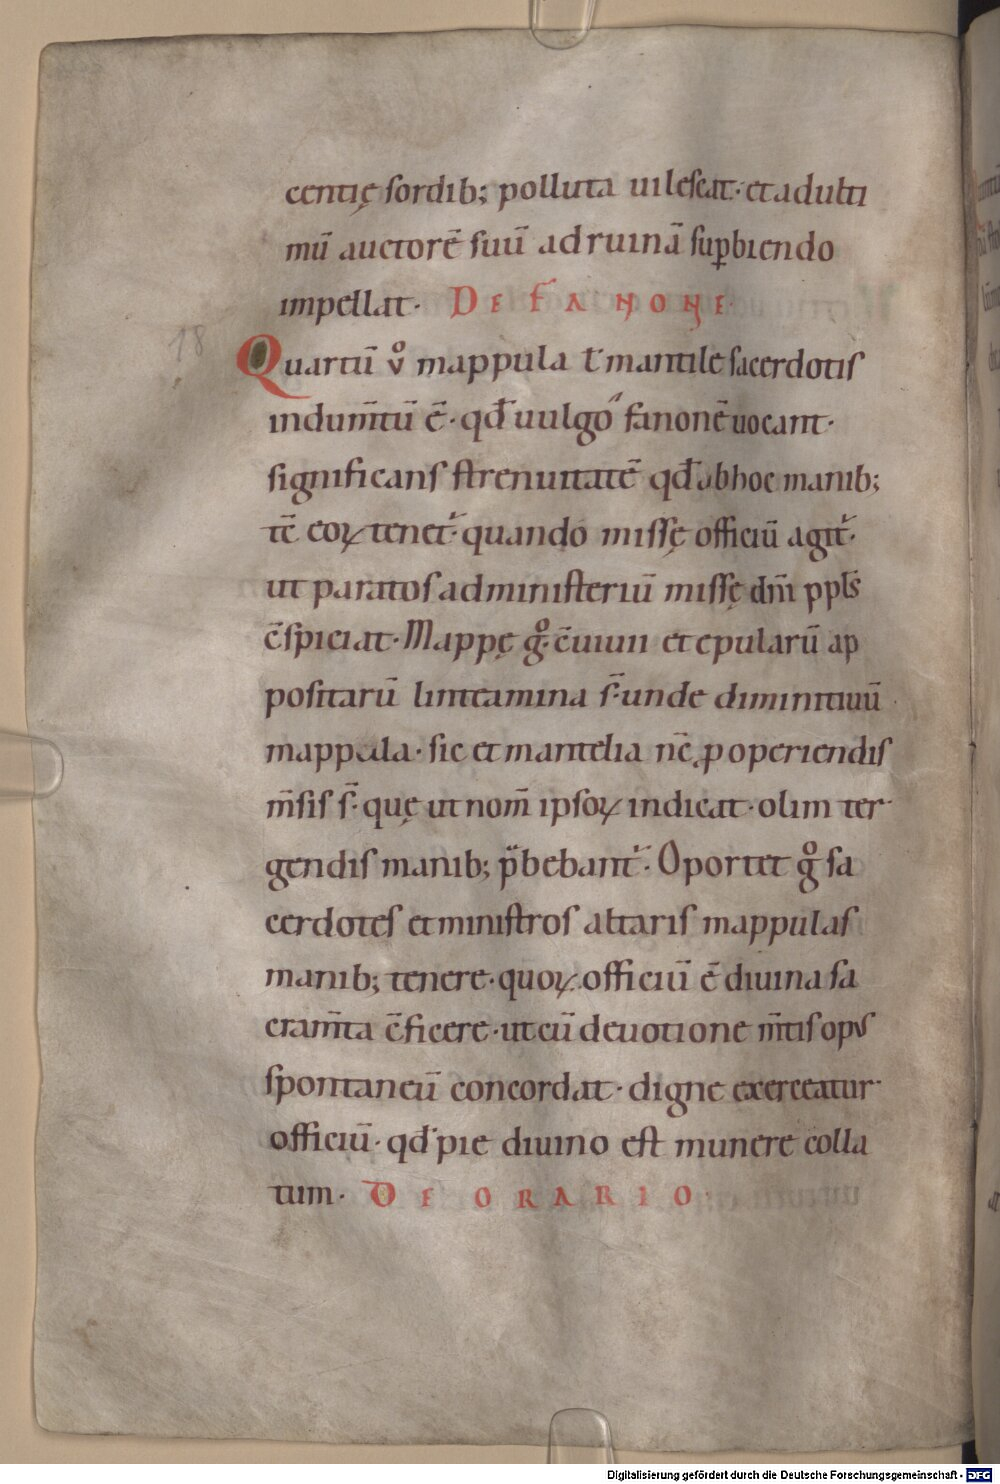 centię sordib; polluta uilescat· et adulti
mū auctorē suū ad ruinā suꝑbiendo
impellat· DE FANONE·
18
Quartū v̊ mappula ł mantile sacerdotis
indum̄tū ē· qđ uulgo fanonē uocant·
significans strenuitatē qđ ob hoc manib;
tē eoꝝ tenet᷑· quando missę officiū agit᷑·
ut paratos ad ministeriū missę dn̄i ppl̄s
c̄spiciat· Mappę g̊· c̄uiuii et epularū ap
positarū linteamina s̄· unde diminitiuū
mappula· sic et mantelia nc̄ ꝓ operiendis
m̄sis s̄· quę ut nom̄ ipsoꝝ indicat· olim ter
gendis manib; p̄bebant᷑· Oportet g̊ sa
cerdotes et ministros altaris mappulas
manib; tenere· quoꝝ officiū ē diuina sa
cram̄ta c̄ficere· ut cū deuotione m̄tis opus
spontaneū concordat· digne exerceatur
officiū· qđ pie diuino est munere colla
tum· DE ORARIO·
Digitalisierung gefördert durch die Deutsche Forschungsgemeinschaft - DFG